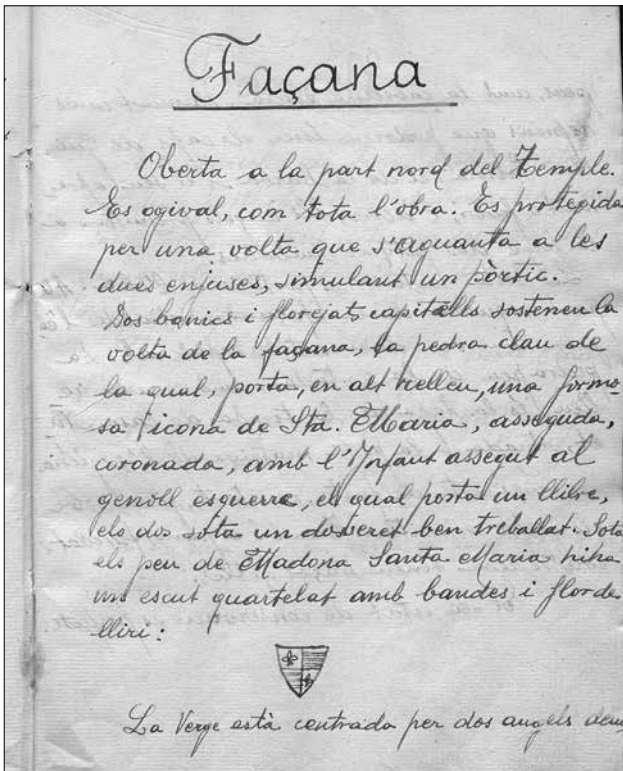 Façana
Oberta a la part nord del Temple.
Es ogival, com tota l'obra. Es protegida
per una volta que s'aguanta a les
dues enjuses, simulant un pòrtic.
Dos bonics i florejats capitells sostenen la
volta de la façana, la pedra clau de
la qual, porta, en alt relleu, una formo-
sa icona de Sta. Maria, asseguda,
coronada, amb l'Infant assegut al
genoll esquerre, el qual porta un llibre,
els dos sota un doseret ben treballat. Sota
els peu de Madona Santa Maria hiha
un escut quartelat amb bandes i flor de
lliri:
La Verge està centrada per dos angels